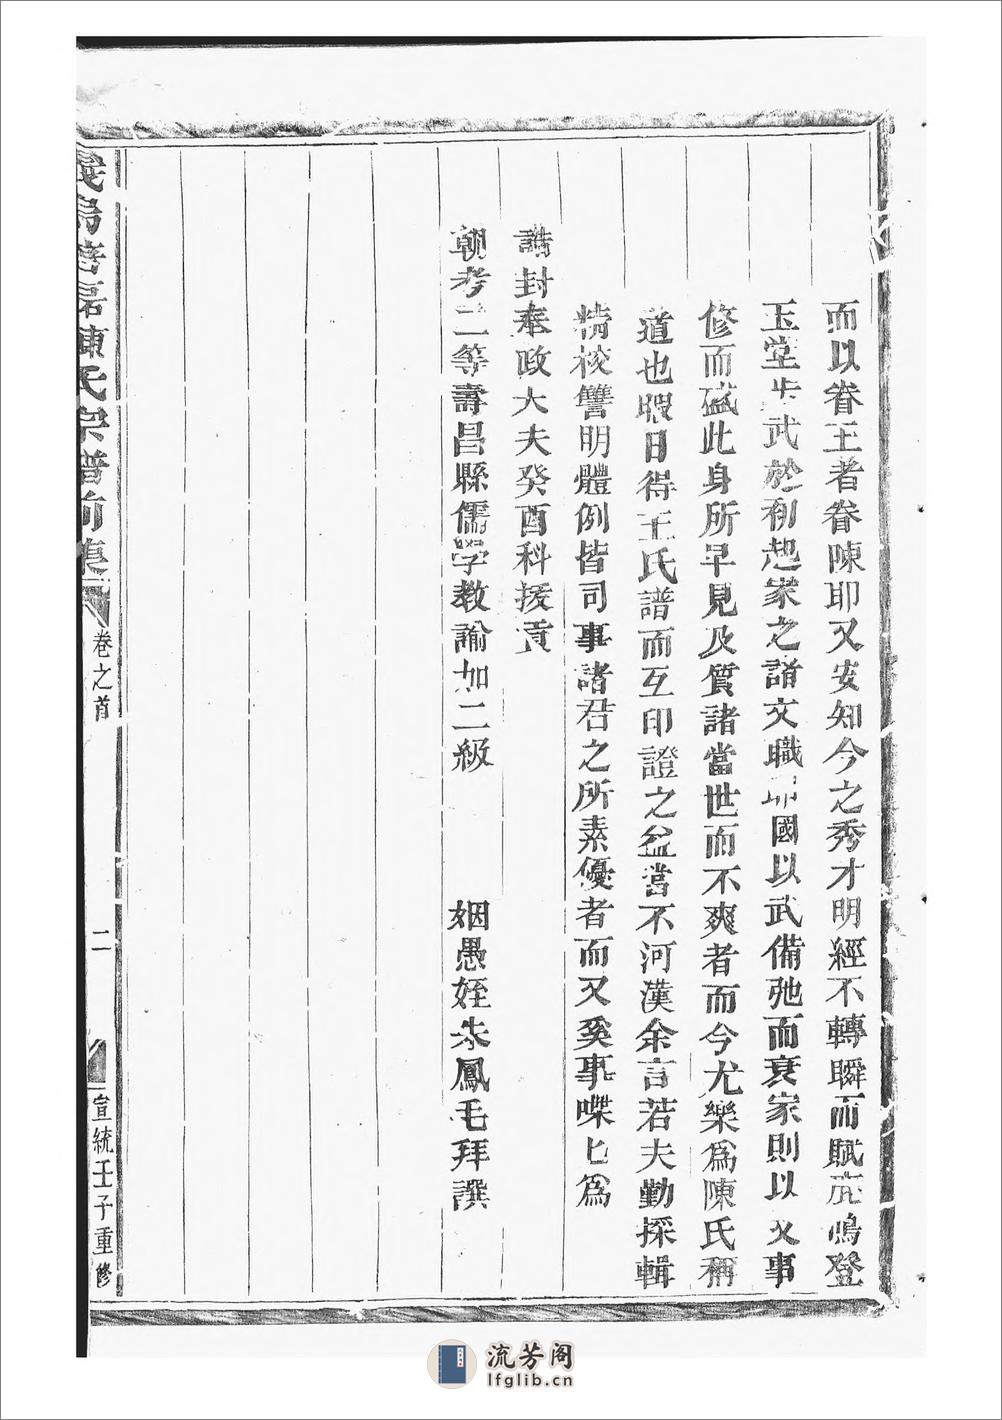 而以眷王者眷陳耶又安知今之秀才明經不轉瞬而賦鹿鳴登
玉堂步武於初起家之諸文職耶國以武備弛而衰家則以文事
修而盛此身所早見及質諸當世而不爽者而今尤樂爲陳氏稱
道也暇日得王氏譜而互印證之益當不河漢余言若夫勤採輯
精校讐明體例皆司事諸君之所素優者而又奚事喋匕爲
誥封奉政大夫癸酉科拔貢
朝考二等壽昌縣儒學教諭加二級 姻愚姪朱鳳毛拜譔
義烏 磊陳氏宗譜前集 卷之首 二 宣統壬子重修
流芳阁
lfglib.cn